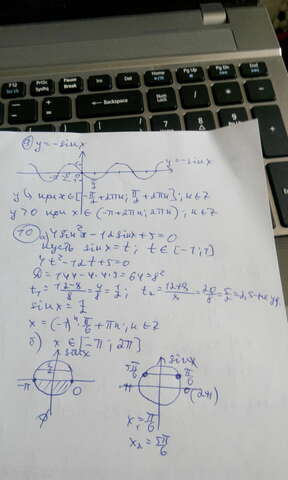 F12
PrtSc
SysRq
Pause
Break
Ins
Del
Home
Pg Up
Pg Dn
End
Backspace
Num
Lock
Enter
Shift
9) y = -sinx
y = -sinx
y ↘ при x ∈ [-π/2 + 2πn; π/2 + 2πn], n ∈ Z
y > 0 при x ∈ (-π + 2πn; 2πn), n ∈ Z
10) а) 4sin²x - 12sinx + 5 = 0
пусть sinx = t; t ∈ [-1; 1]
4t² - 12t + 5 = 0
D = 144 - 4·4·5 = 64 = 8²
t₁ = 12-8/8 = 4/8 = 1/2; t₂ = 12+8/8 = 20/8 = 5/2 = 2,5
sinx = 1/2
x = (-1)ⁿ π/6 + πn, n ∈ Z
б) x ∈ [-π; 2π]
sinx
sinx
-π
0
5π/6
π/6
π
0 (2π)
x₁ = π/6
x₂ = 5π/6